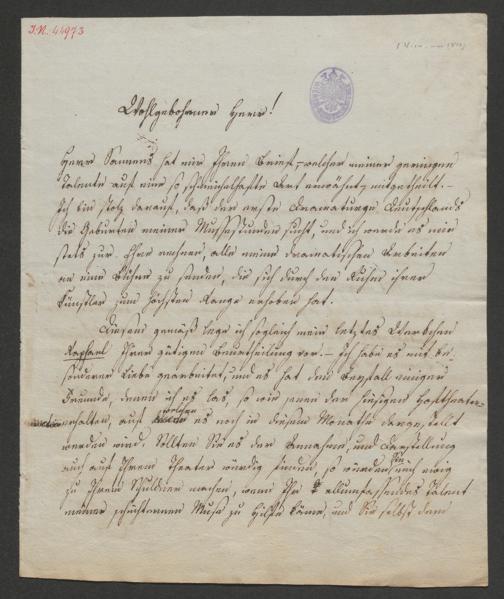 I.N. 44973
Wohlgebohrner Herr!
Herr Samens hat mir Ihren Brief, welcher meiner geringen
Talente auf eine so schmeichelhafte Art erwähnt, mitgetheilt. –
Ich bin stolz darauf, daß der erste Dramaturge Deutschlands
die Geburten meiner Mussestunden sucht, und ich werde es mir
stets zur Ehre rechnen, alle meine dramatischen Arbeiten
an eine Bühne zu senden, die sich durch den Ruhm ihrer
Künstler zum höchsten Range erhoben hat.
Diesem gemäß lege ich sogleich mein letztes Werkchen
Raphael Ihrer gütigen Beurtheilung vor. – Ich habe es mit be-
sonderer Liebe gearbeitet, und es hat den Beyfall einiger
Freunde, denen ich es las, so wie jenen der hiesigen Hoftheater-
erhalten, auf welchem es noch in diesem Monathe dargestellt
werden wird. Sollten Sie es der Annahme, und Darstellung
auch auf Ihrem Theater würdig finden, so würden Sie mich ewig
zu Ihrem Schuldner machen, wenn Ihr allumfassendes Talent
meiner schüchternen Muse zu Hilfe käme, und Sie selbst dem